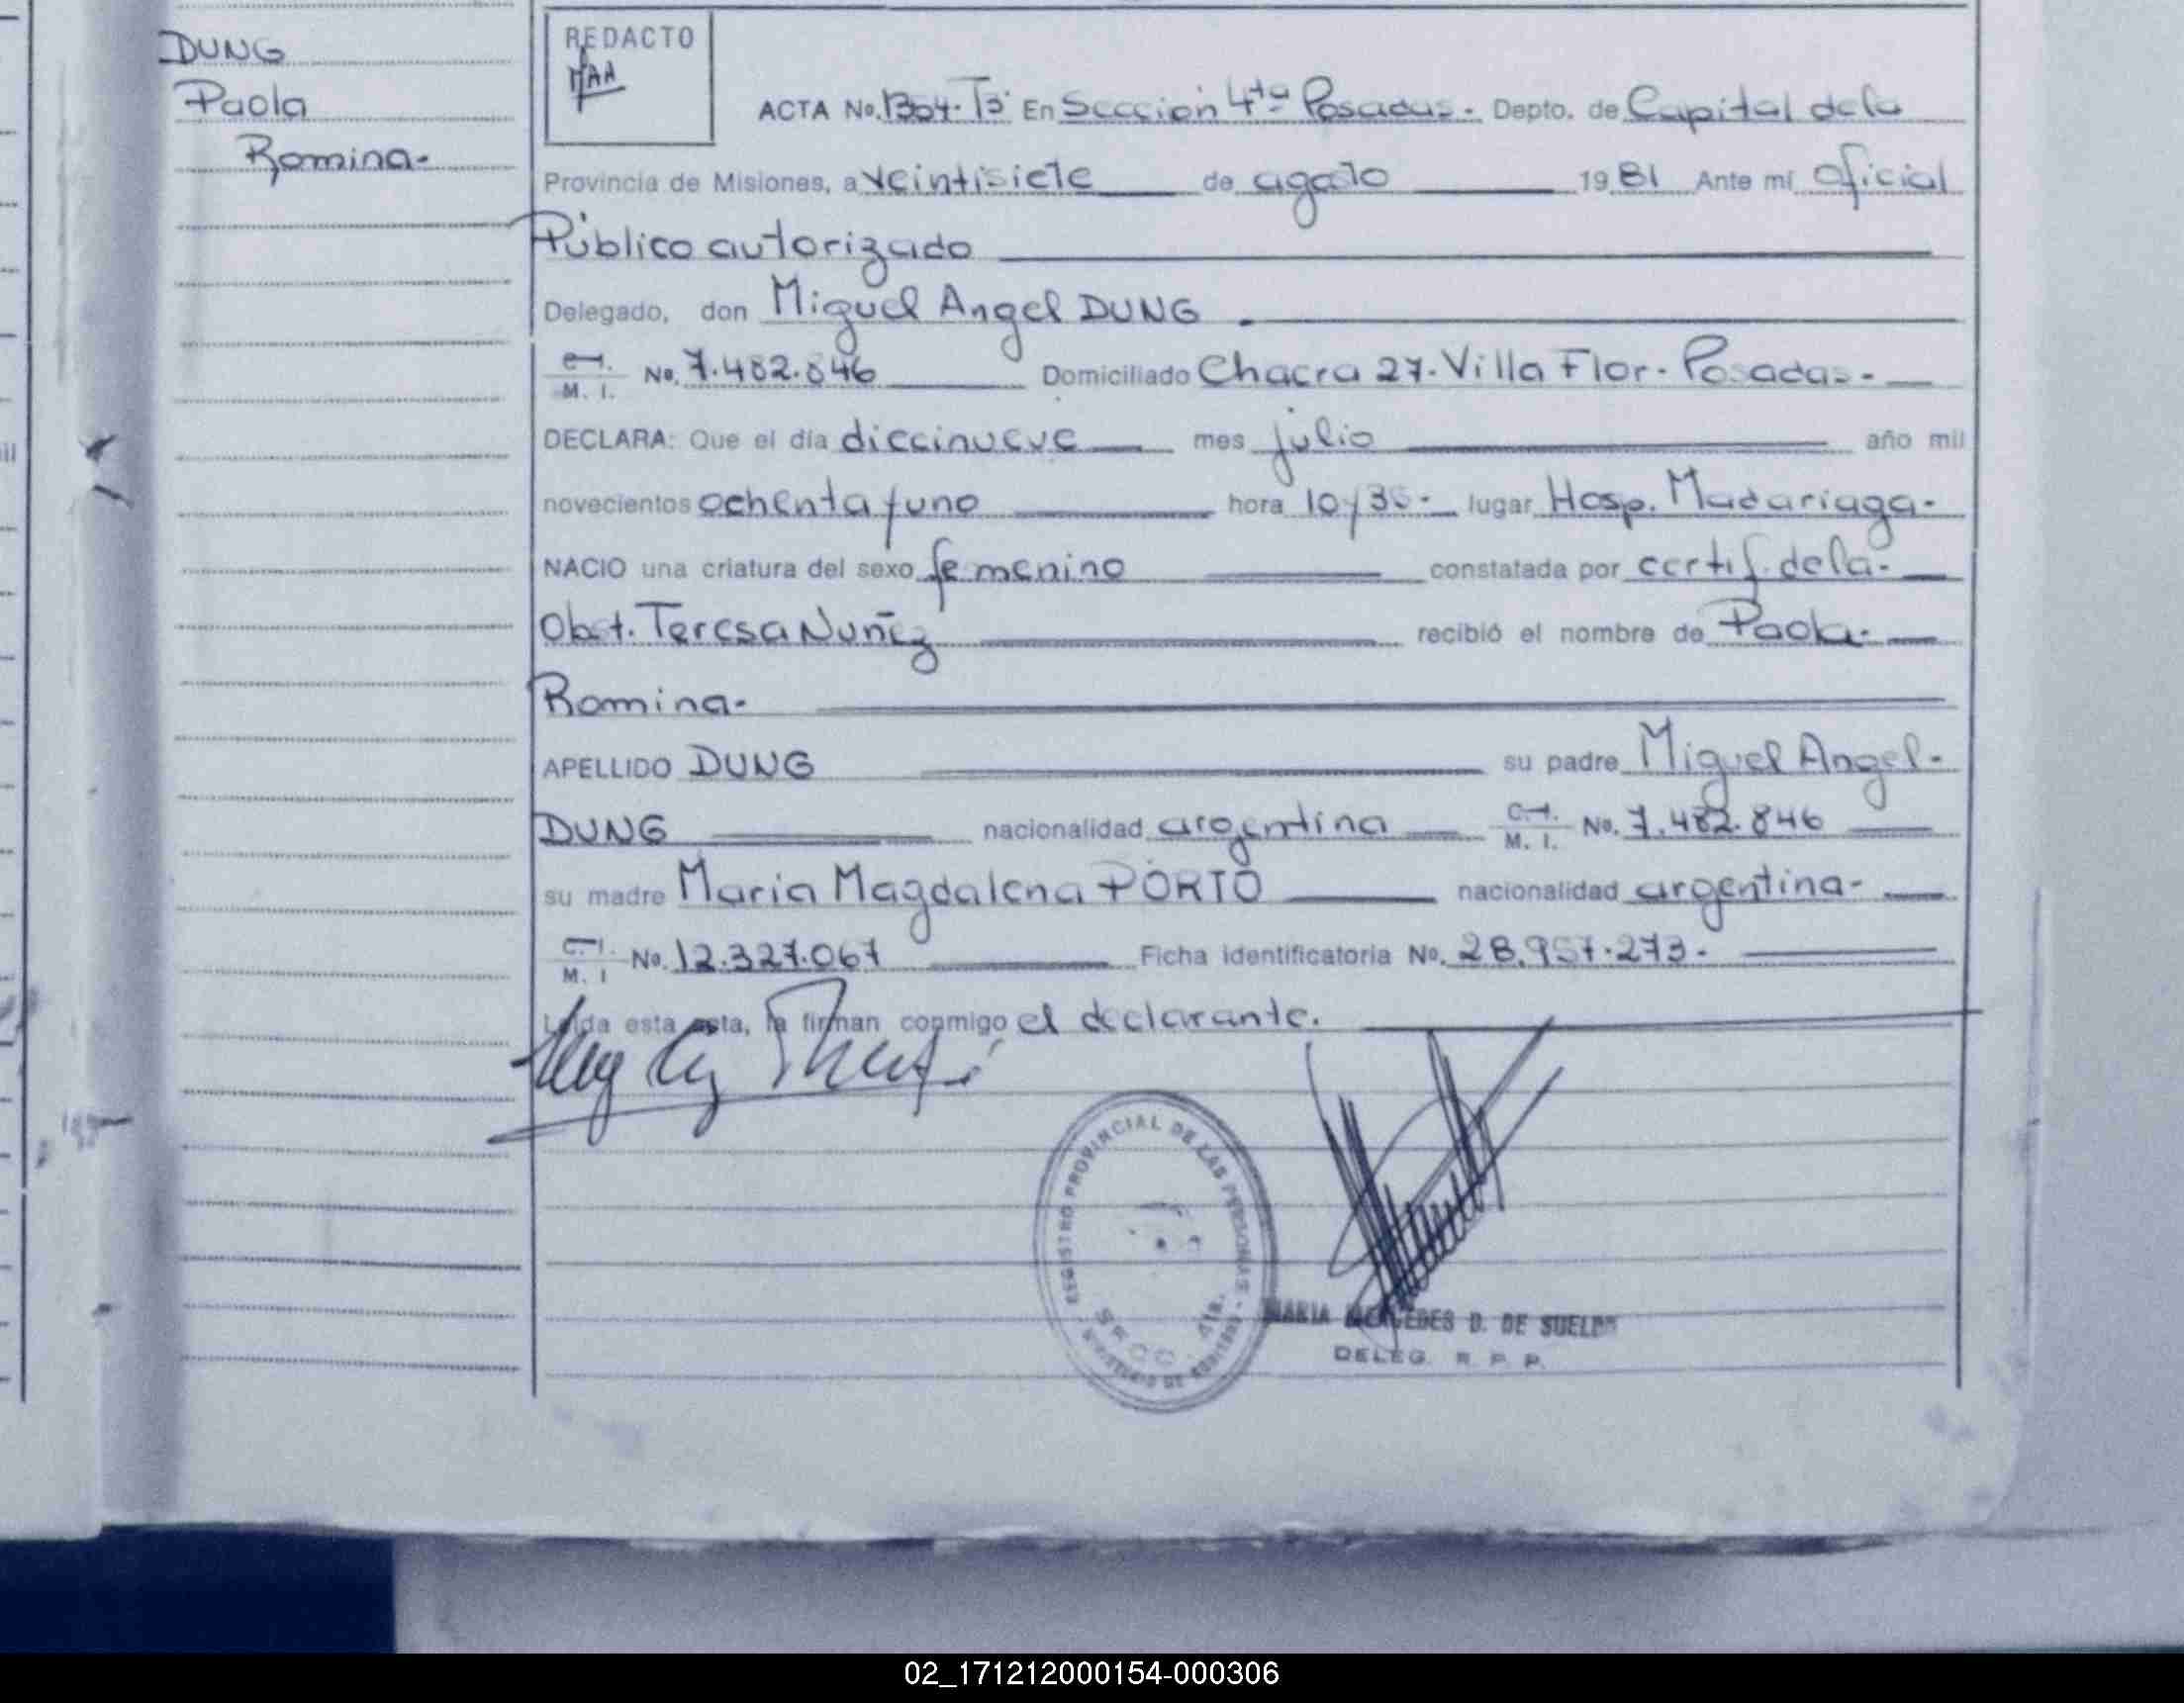 DUNG
Paola
Romina-
REDACTO
ACTA No. 1304-T3 En Sección 4ta Posadas- Depto. de Capital de la
Provincia de Misiones, a veintisiete de agosto 1981 Ante mí oficial
Público autorizado
Delegado, don Miguel Angel DUNG
C.I. M. I. No. 7.482.846 Domiciliado Chacra 27- Villa Flor- Posadas-
DECLARA: Que el día diecinueve mes julio año mil
novecientos ochenta y uno hora 10y30- lugar Hosp. Madariaga-
NACIO una criatura del sexo femenino constatada por certif. de la-
Obst. Teresa Nuñez recibió el nombre de Paola-
Romina-
APELLIDO DUNG su padre Miguel Angel-
DUNG nacionalidad argentina C.I. M. I. No. 7.482.846
su madre Maria Magdalena PORTO nacionalidad argentina-
C.I. M. I No. 12.327.067 Ficha identificatoria No. 28.957.273-
Leída esta acta, la firman conmigo el declarante.
REGISTRO PROVINCIAL DE LAS PERSONAS
SECC. 4ta.
MARIA MERCEDES D. DE SUELDO
DELEG. R. P. P.
02_171212000154-000306